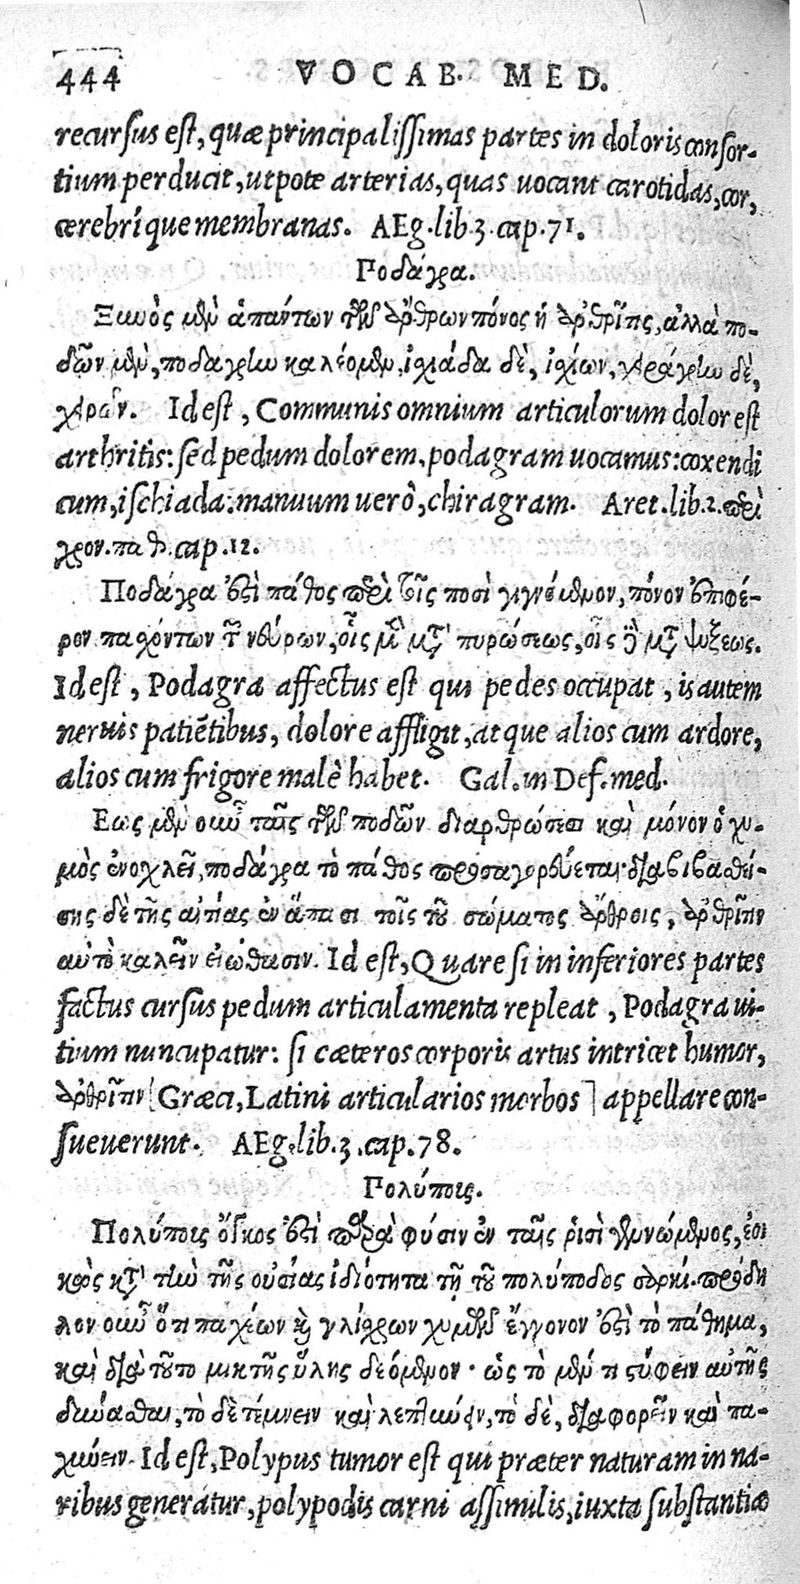 444 VOCAB. MED.
recursus est, quæ principalissimas partes in doloris consor-
tium perducit, utpote arterias, quas uocant carotidas, cor,
cerebrique membranas. AEg. lib. 3. cap. 71.
Ποδάγρα.
Ξυνὸς μὲν ἁπάντων τῶν ἄρθρων πόνος ἡ ἀρθρῖτις, ἀλλὰ πο-
δῶν μὲν, ποδαγρίην καλέομεν, ἰσχιάδα δὲ, ἰσχίων, χεράγρίην δὲ,
χερῶν. Id est, Communis omnium articulorum dolor est
arthritis: sed pedum dolorem, podagram uocamus: coxendi
cum, ischiada: manuum uerò, chiragram. Aret. lib. 2. περὶ
χρον. παθ. cap. 12.
Ποδάγρα ἐστὶ πάθος περὶ τοῖς ποσὶ γιγνόμενον, πόνον ἐπιφέ-
ρον πασχόντων τῶν νεύρων, οἷς μὲν μετὰ πυρώσεως, οἷς δὲ μετὰ ψύξεως.
Id est, Podagra affectus est qui pedes occupat, is autem
neruis patiētibus, dolore affligit, atque alios cum ardore,
alios cum frigore malè habet. Gal. in Def. med.
Εως μὲν οὖν ταῖς τῶν ποδῶν διαρθρώσεσι καὶ μόνον ὁ χυ-
μὸς ἐνοχλεῖ, ποδάγρα τὸ πάθος προσαγορεύεται· διαβιβαθεί-
σης δὲ τῆς αἰτίας ἐν ἅπασι τοῖς τοῦ σώματος ἄρθροις, ἀρθρῖτιν
αὐτὸ καλεῖν εἰώθασιν. Id est, Quare si in inferiores partes
factus cursus pedum articulamenta repleat, Podagra ui-
tium nuncupatur: si cæteros corporis artus intricet humor,
ἀρθρῖτιν [Græci, Latini articularios morbos] appellare con-
sueuerunt. AEg. lib. 3. cap. 78.
Πολύποις.
Πολύποις ὄγκος ἐστὶ παρὰ φύσιν ἐν ταῖς ῥισὶ γεννώμενος, ἐοι
κὼς κατὰ τὴν τῆς οὐσίας ἰδιότητα τῇ τοῦ πολύποδος σαρκί. πρόδη
λον οὖν ὅτι παχέων καὶ γλίσχρων χυμῶν ἔγγονον ἐστὶ τὸ πάθημα,
καὶ διὰ τοῦτο μικτῆς ὕλης δεόμενον· ὡς τὸ μέν τι στύφειν αὐτῆς
δύνασθαι, τὸ δὲ τέμνειν καὶ λεπτύνειν, τὸ δὲ, διαφορεῖν καὶ πα-
χύνειν. Id est, Polypus tumor est qui præter naturam in na-
ribus generatur, polypodis carni assimilis, iuxta substantiæ